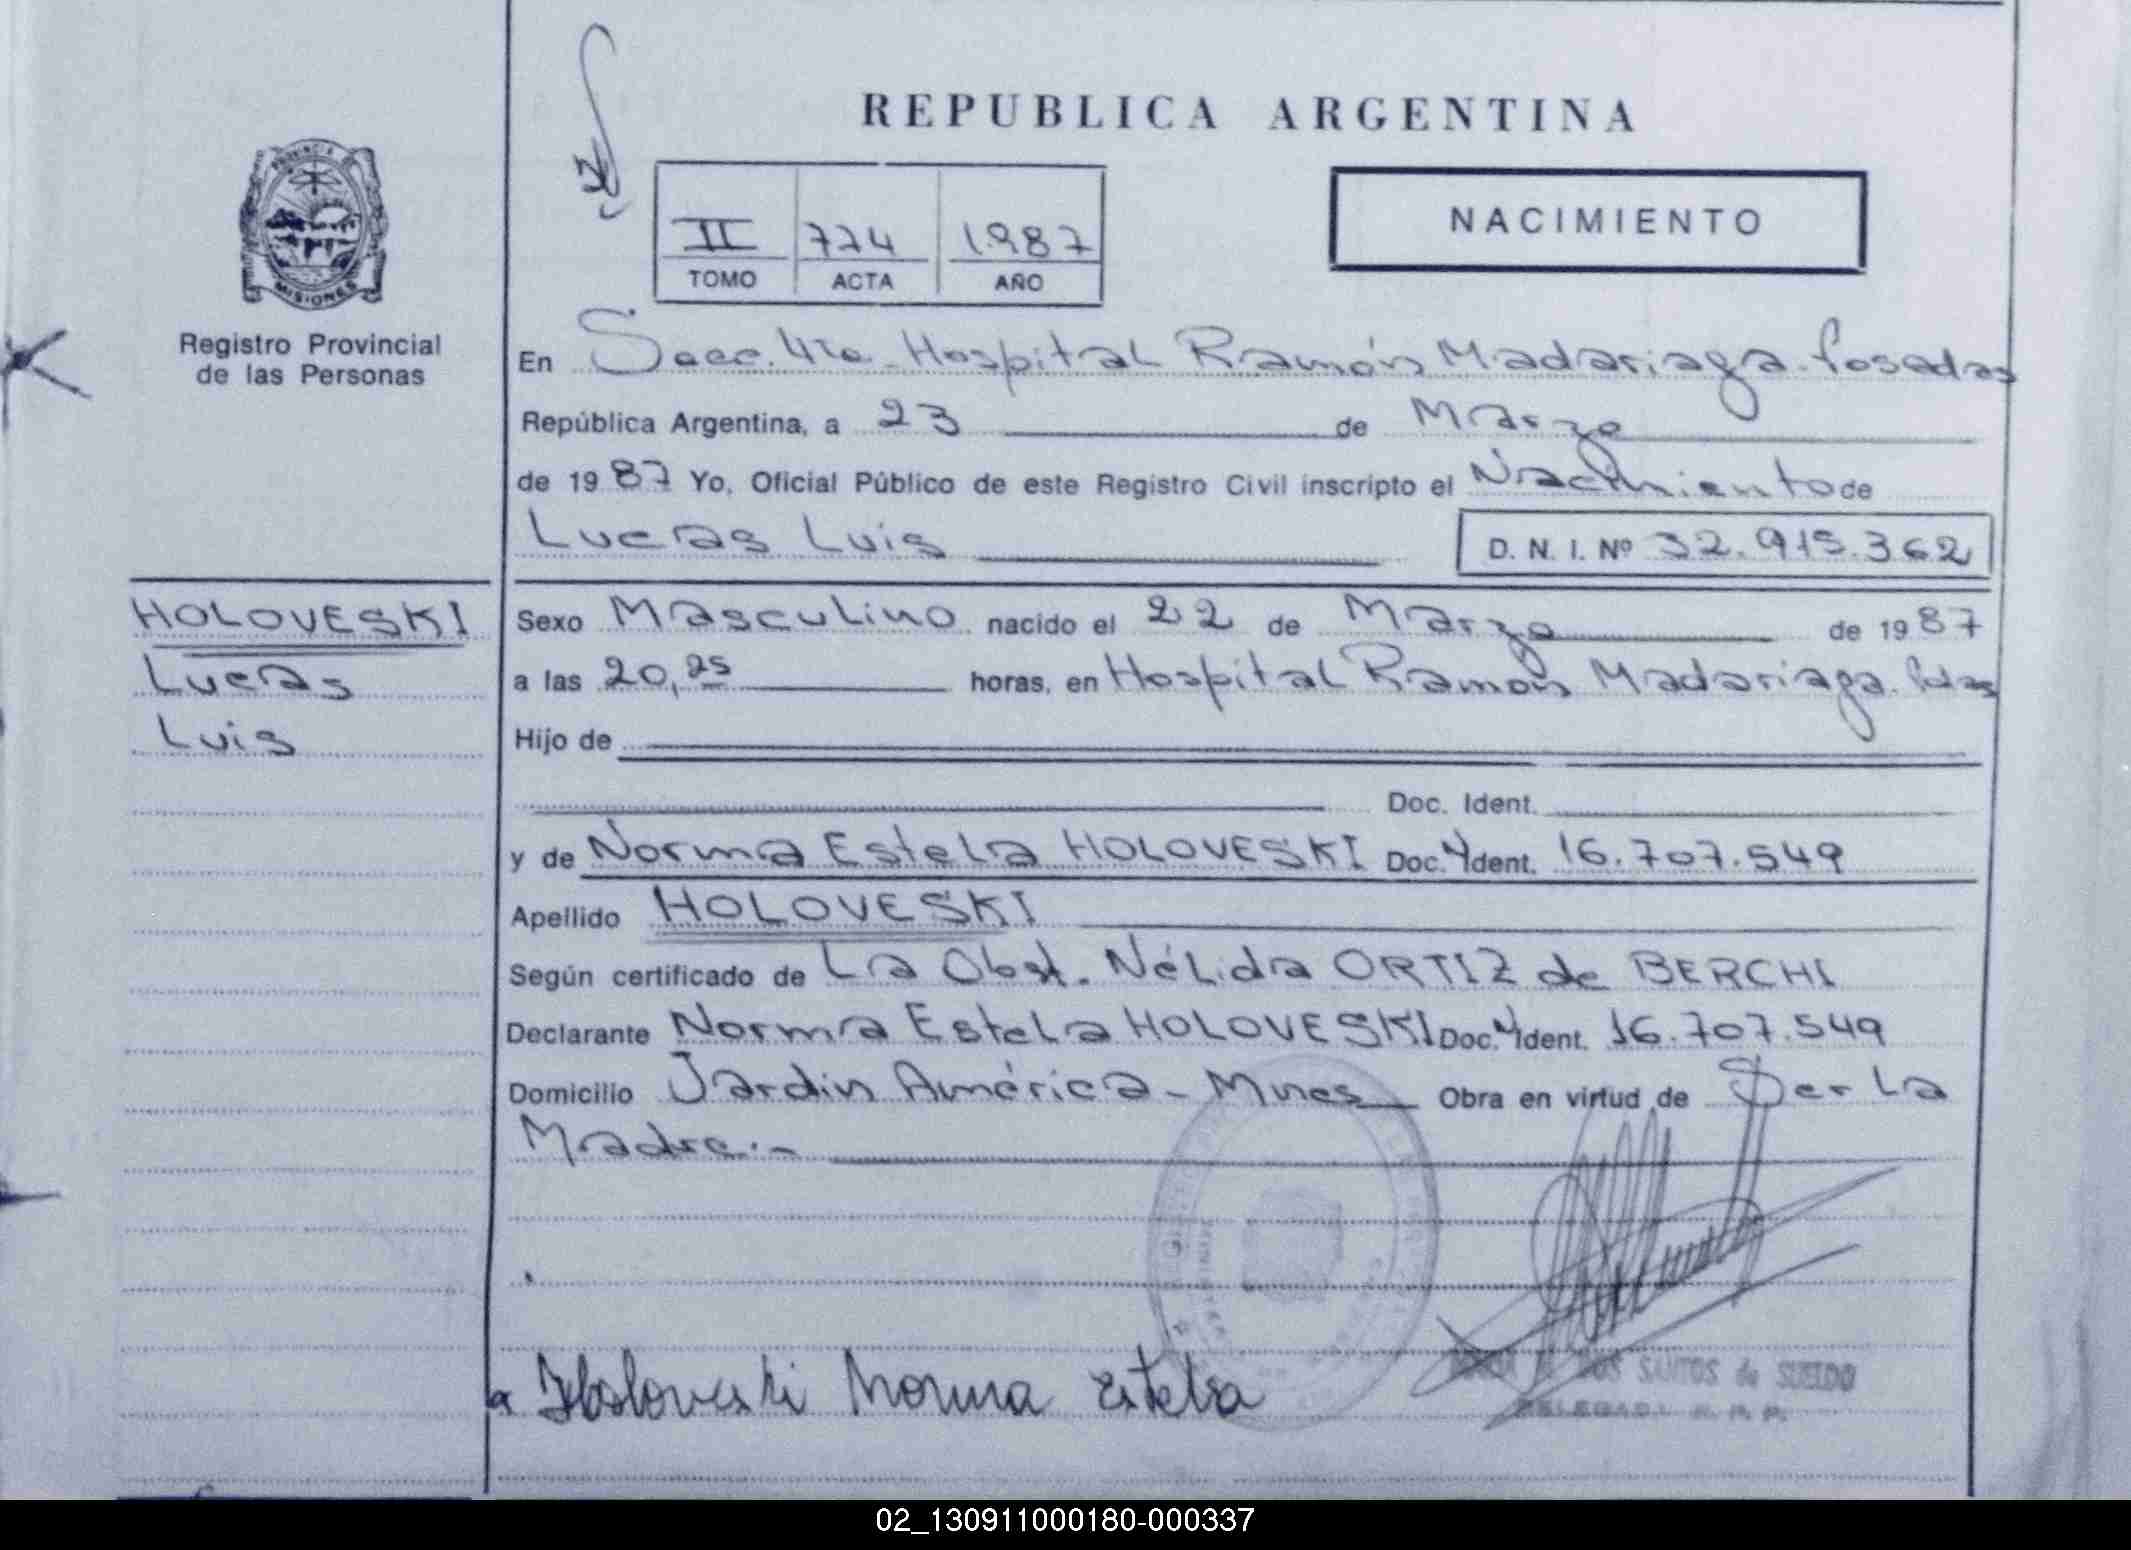 REPUBLICA ARGENTINA
PROVINCIA
MISIONES
Registro Provincial
de las Personas
II 774 1987
TOMO ACTA AÑO
NACIMIENTO
En Secc. 4ta. Hospital Ramón Madariaga. Posadas
República Argentina, a 23 de Marzo
de 1987 Yo, Oficial Público de este Registro Civil inscripto el Nacimiento de
Lucas Luis D. N. I. Nº 32.915.362
HOLOVESKI
Lucas
Luis
Sexo Masculino nacido el 22 de Marzo de 1987
a las 20,25 horas, en Hospital Ramón Madariaga. Pdas
Hijo de
Doc. Ident.
y de Norma Estela HOLOVESKI Doc. Ident. 16.707.549
Apellido HOLOVESKI
Según certificado de La Obst. Nélida ORTIZ de BERCHI
Declarante Norma Estela HOLOVESKI Doc. Ident. 16.707.549
Domicilio Jardin América - Mnes Obra en virtud de Ser La
Madre.-
Holoveski Norma Estela
DOS SANTOS de SUELDO
02_130911000180-000337